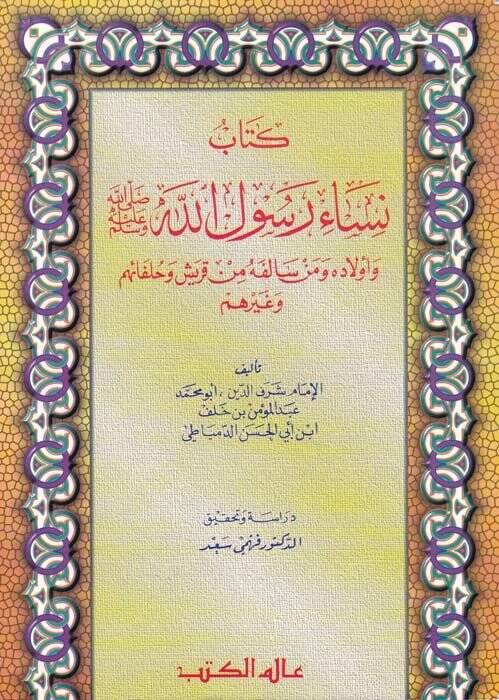 كتاب
نساء رسول الله صلى الله عليه وسلم
وأولاده ومن سالفه من قريش وحلفائهم
وغيرهم
تأليف
الإمام شرف الدين، أبو محمد
عبد المؤمن بن خلف
ابن أبي الحسن الدمياطي
دراسة وتحقيق
الدكتور فهمي سعد
عالم الكتب